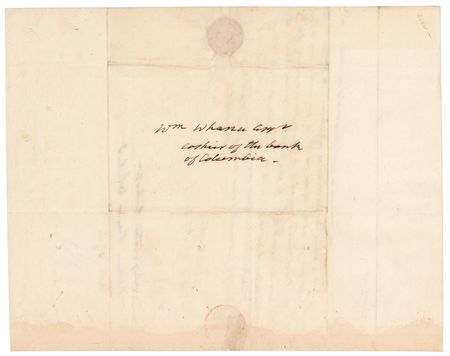 Wm Whann esqr
cashier of the bank
of Columbia -